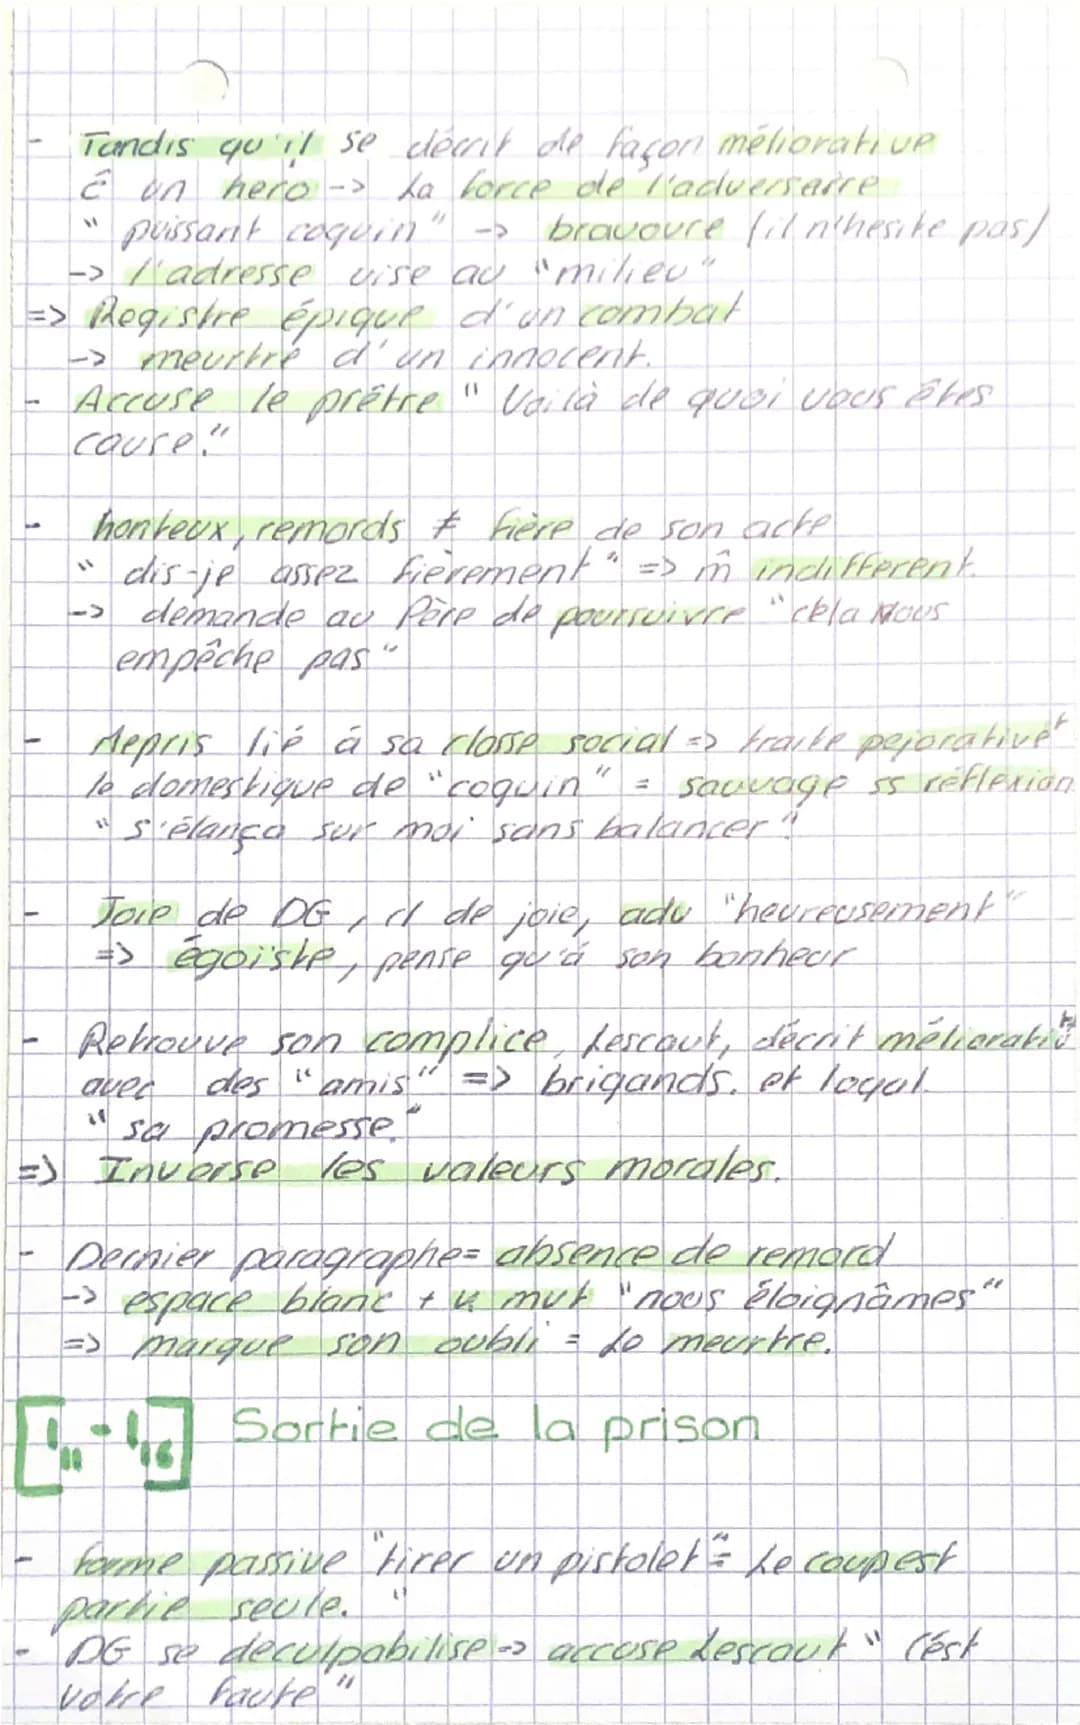 - Tandis qu'il se décrit de façon méliorative
ĉ un hero -> La force de l'adversaire
" puissant coquin" -> bravoure (il n'hesite pas)
-> l'adresse vise au "milieu"
=> Registre épique d'un combat
-> meurtre d'un innocent.
- Accuse le prêtre " Voilà de quoi vous êtes
cause."
- honteux, remords ≠ fière de son acte
" dis-je assez fièrement" => m̂ indifferent.
-> demande au Père de poursuivre "cela nous
empêche pas"
- Mepris lié à sa classe social => traite pejorativet
le domestique de "coquin" = sauvage ss réflexion
" s'élança sur moi sans balancer"
- Joie de DG, cl de joie, adv "heureusement"
=> égoïste, pense qu'à son bonheur
- Retrouve son complice, Lescaut, décrit méliorativt
avec des "amis" => brigands. et loyal.
" sa promesse."
=> Inverse les valeurs morales.
- Dernier paragraphe= absence de remord
-> espace blanc + v. mvt "nous éloignâmes"
=> marque son oubli = Le meurtre.
[l11 - l16] Sortie de la prison
- forme passive "tirer un pistolet" = Le coup est
partie seule. "
- DG se déculpabilise => accuse Lescaut " C'est
votre faute"